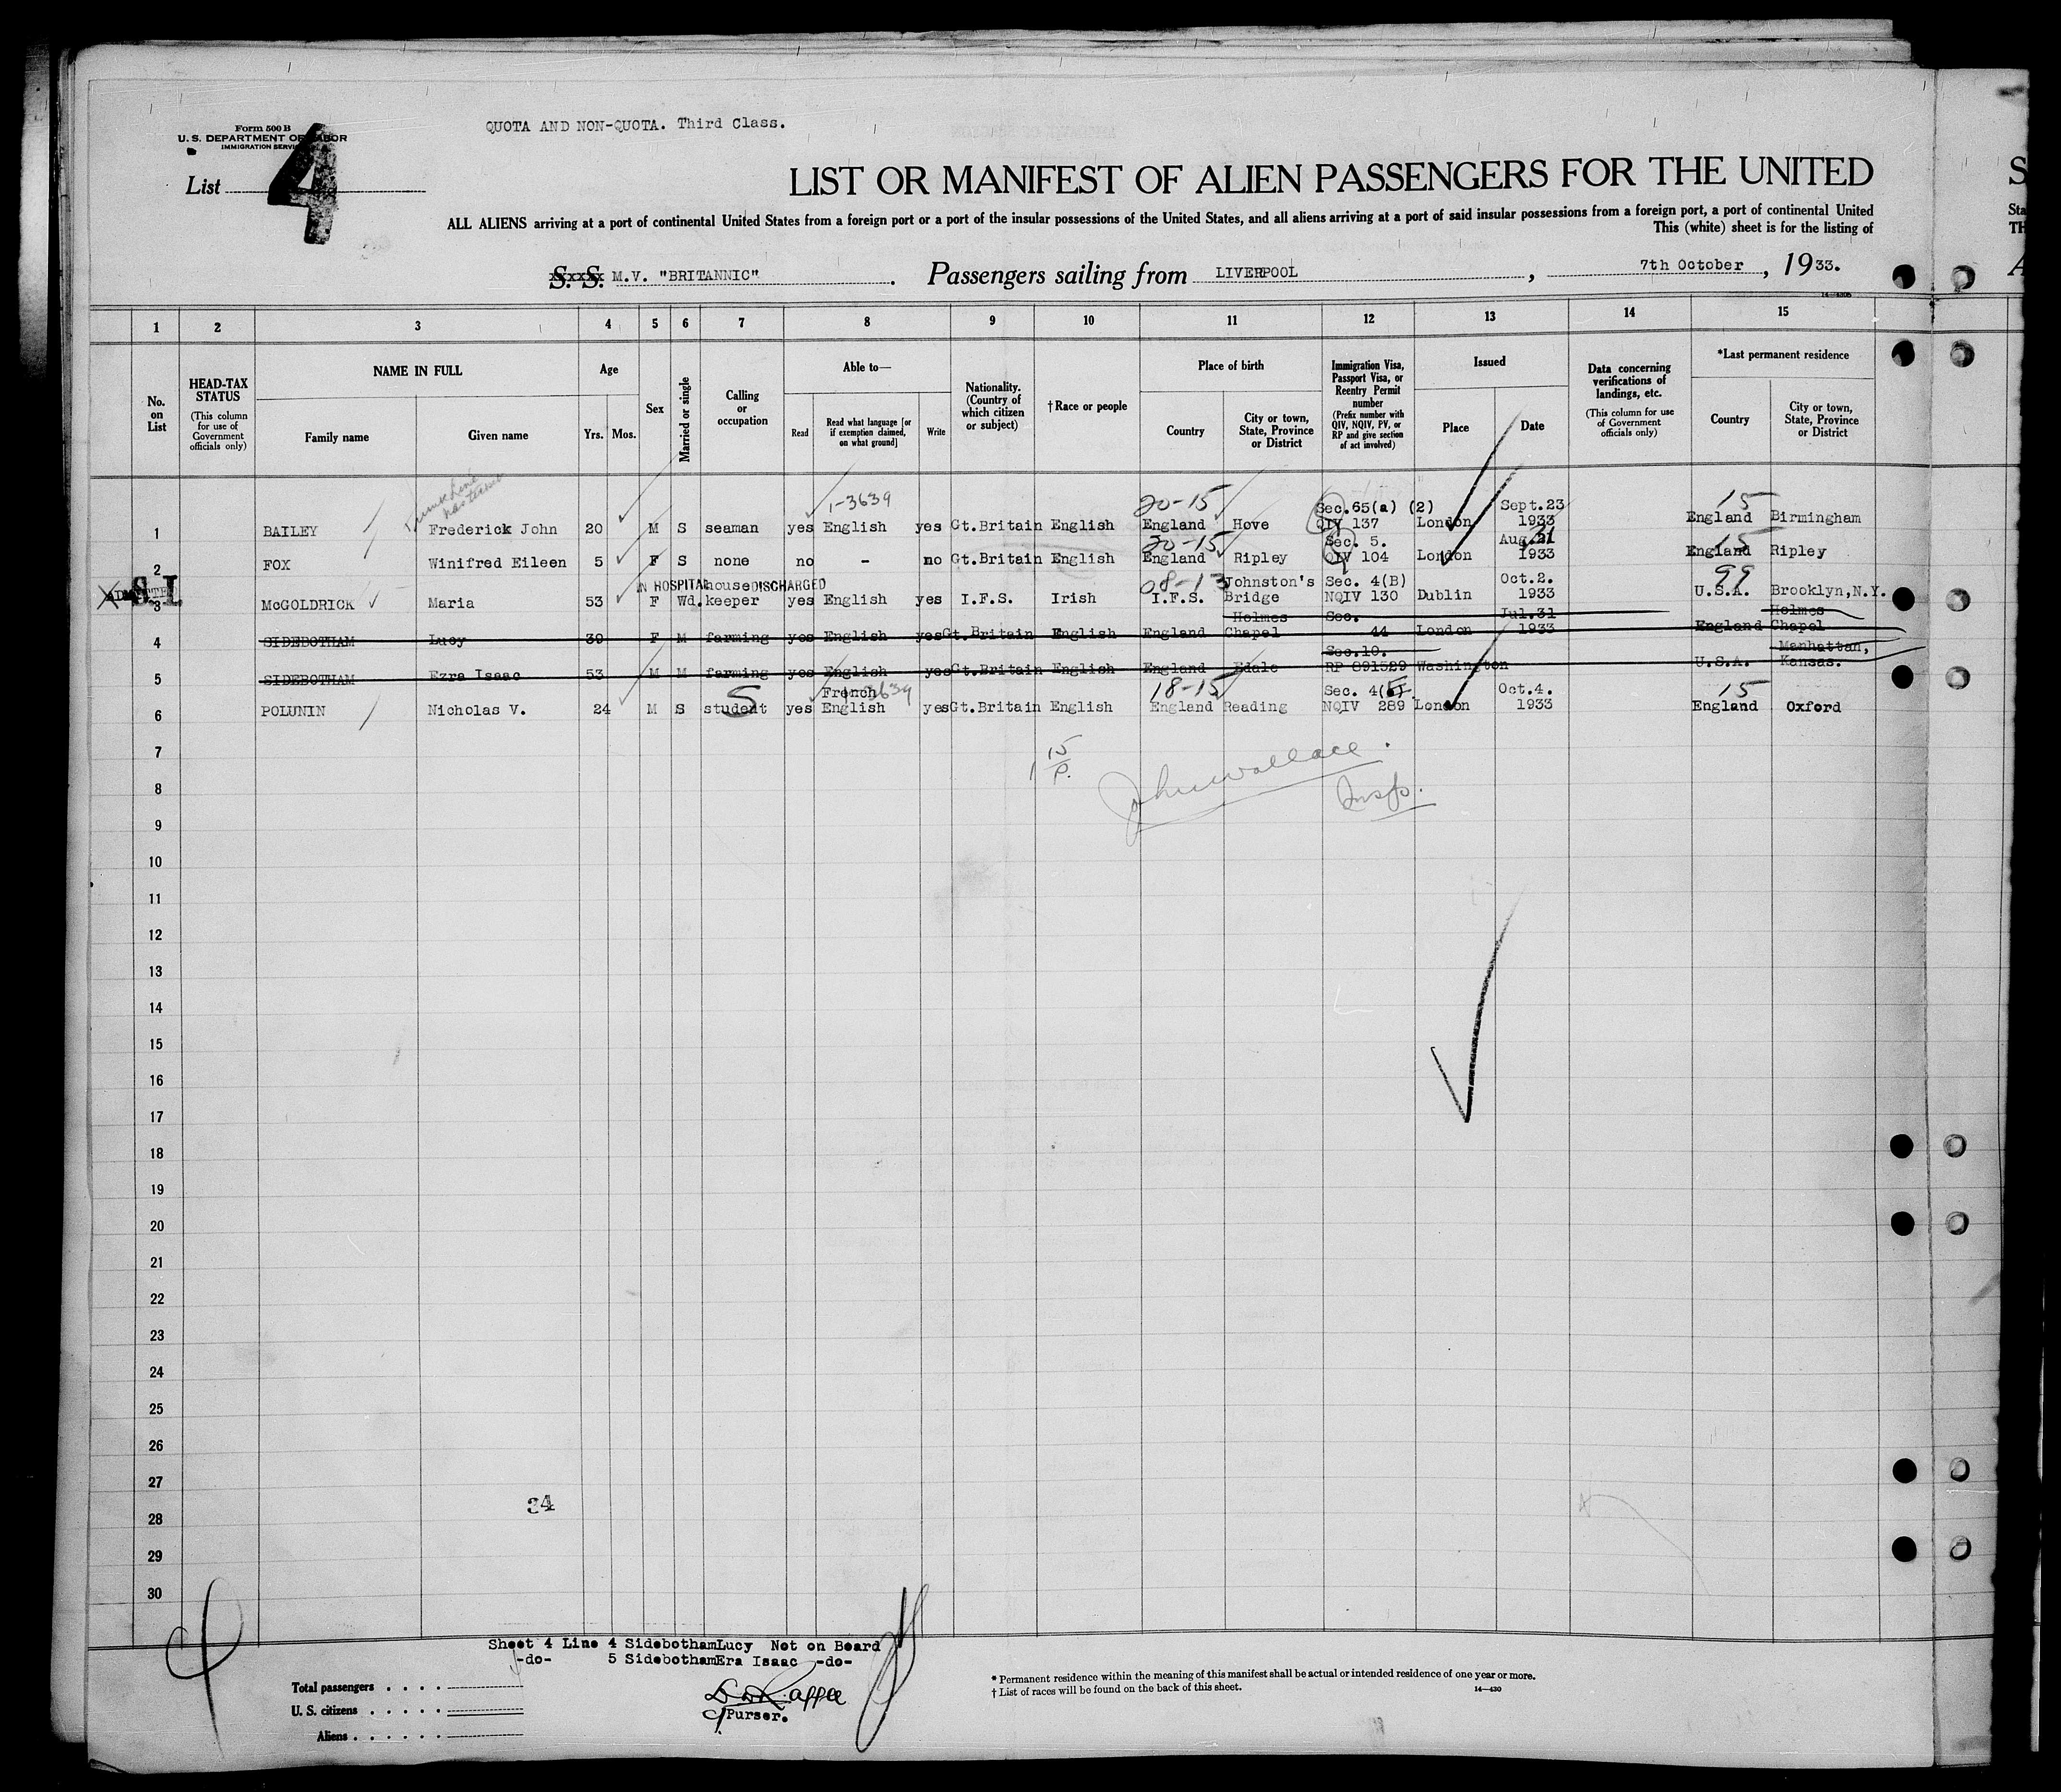 Form 500 B
U. S. DEPARTMENT OF LABOR
IMMIGRATION SERVICE
QUOTA AND NON-QUOTA. Third Class.
List 4
LIST OR MANIFEST OF ALIEN PASSENGERS FOR THE UNITED
ALL ALIENS arriving at a port of continental United States from a foreign port or a port of the insular possessions of the United States, and all aliens arriving at a port of said insular possessions from a foreign port, a port of continental United
This (white) sheet is for the listing of
S. S. M.V. "BRITANNIC" . Passengers sailing from LIVERPOOL , 7th October , 1933.
1 2 3 4 5 6 7 8 9 10 11 12 13 14 15
No. on List
HEAD-TAX STATUS
(This column for use of Government officials only)
NAME IN FULL
Family name Given name
Age
Yrs. Mos.
Sex
Married or single
Calling or occupation
Able to—
Read
Read what language [or if exemption claimed, on what ground]
Write
Nationality. (Country of which citizen or subject)
† Race or people
Place of birth
Country
City or town, State, Province or District
Immigration Visa, Passport Visa, or Reentry Permit number
(Prefix number with QIV, NQIV, PV, or RP and give section of act involved)
Issued
Place Date
Data concerning verifications of landings, etc.
(This column for use of Government officials only)
*Last permanent residence
Country
City or town, State, Province or District
1-3639 20-15 Sec.65(a) (2) Sept.23 15
1 BAILEY Frederick John 20 M S seaman yes English yes Gt.Britain English England Hove QIV 137 London 1933 England Birmingham
20-15 Sec. 5. Aug.21 15
2 FOX Winifred Eileen 5 F S none no - no Gt.Britain English England Ripley QIV 104 London 1933 England Ripley
S.I. IN HOSPITAL house DISCHARGED 08-13 Johnston's Sec. 4(B) Oct.2. 99
3 McGOLDRICK Maria 53 F Wd. keeper yes English yes I.F.S. Irish I.F.S. Bridge NQIV 130 Dublin 1933 U.S.A. Brooklyn,N.Y.
Holmes Sec. Jul.31 Holmes
4 SIDEBOTHAM Lucy 30 F M farming yes English yes Gt.Britain English England Chapel 44 London 1933 England Chapel
Sec.10. Manhattan,
5 SIDEBOTHAM Ezra Isaac 53 M M farming yes English yes Gt.Britain English England Edale RP 891529 Washington U.S.A. Kansas.
S French 3639 18-15 Sec. 4(E) Oct.4. 15
6 POLUNIN Nicholas V. 24 M S student yes English yes Gt.Britain English England Reading NQIV 289 London 1933 England Oxford
7
15
P.
John Wallace.
Insp.
8
9
10
11
12
13
14
15
16
17
18
19
20
21
22
23
24
25
26
27
34
28
29
30
Sheet 4 Line 4 SidebothamLucy Not on Board
-do- 5 SidebothamEra Isaac -do-
Purser.
Total passengers
U. S. citizens
Aliens
* Permanent residence within the meaning of this manifest shall be actual or intended residence of one year or more.
† List of races will be found on the back of this sheet.
14—430